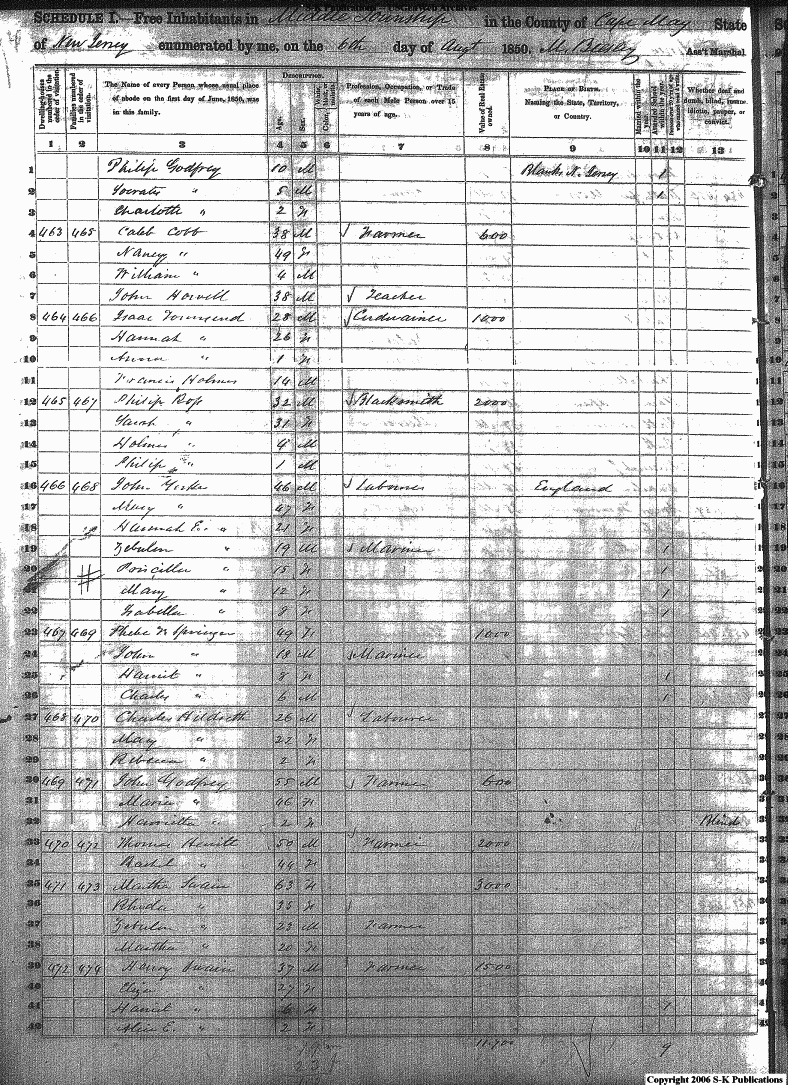 S-K Publications - USGenWeb Archives
SCHEDULE I.—Free Inhabitants in Middle Township in the County of Cape May State
of New Jersey enumerated by me, on the 6th day of Augt 1850. M. Beesley Ass't Marshal.
Dwelling-houses numbered in the order of visitation.
Families numbered in the order of visitation.
The Name of every Person whose usual place of abode on the first day of June, 1850, was in this family.
DESCRIPTION.
Age.
Sex.
Profession, Occupation, or Trade of each Male Person over 15 years of age.
Value of Real Estate owned.
PLACE OF BIRTH. Naming the State, Territory, or Country.
Married within the year.
Attended School within the year.
Whether deaf and dumb, blind, insane, idiotic, pauper, or convict.
1 2 3 4 5 6 7 8 9 10 11 12 13
1 Philip Godfrey 10 M Blanks N. Jersey 1
2 Socrates " 5 M 1
3 Charlotte " 2 F
4 463 465 Caleb Cobb 38 M Farmer 600
5 Nancy " 49 F
6 William " 4 M
7 John Howell 38 M Teacher
8 464 466 Isaac Townsend 28 M Cordwainer 1000
9 Hannah " 26 F
10 Anna " 1 F
11 Francis Holmes 14 M
12 465 467 Philip Ross 32 M Blacksmith 2000
13 Sarah " 31 F
14 Holmes " 4 M
15 Philip " 1 M
16 466 468 John 46 M Labourer England
17 Mary " 47 F
18 Hannah E. " 21 F
19 Zebulon " 19 M Mariner 1
20 Priscilla " 15 F 1
21 Mary " 12 F 1
22 Isabella " 8 F 1
23 467 469 Phebe Springer 49 F 1000
24 John " 18 M Mariner
25 Harriet " 8 F 1
26 Charles " 6 M 1
27 468 470 Charles Hildreth 26 M Labourer
28 Mary " 22 F
29 Rebecca " 2 F
30 469 471 John Godfrey 55 M Farmer 600
31 Maria " 46 F
32 Harrietta " 2 F Blind
33 470 472 Thomas Hewitt 50 M Farmer 2000
34 Rachel " 44 F
35 471 473 Martha Swain 63 F 3000
36 Rhoda " 35 F
37 Zebulon " 23 M Farmer
38 Martha " 20 F
39 472 474 Henry Swain 37 M Farmer 1500
40 Eliza " 27 F
41 Harriet " 6 F 1
42 Alice E. " 2 F
11,700 9
23
Copyright 2006 S-K Publications